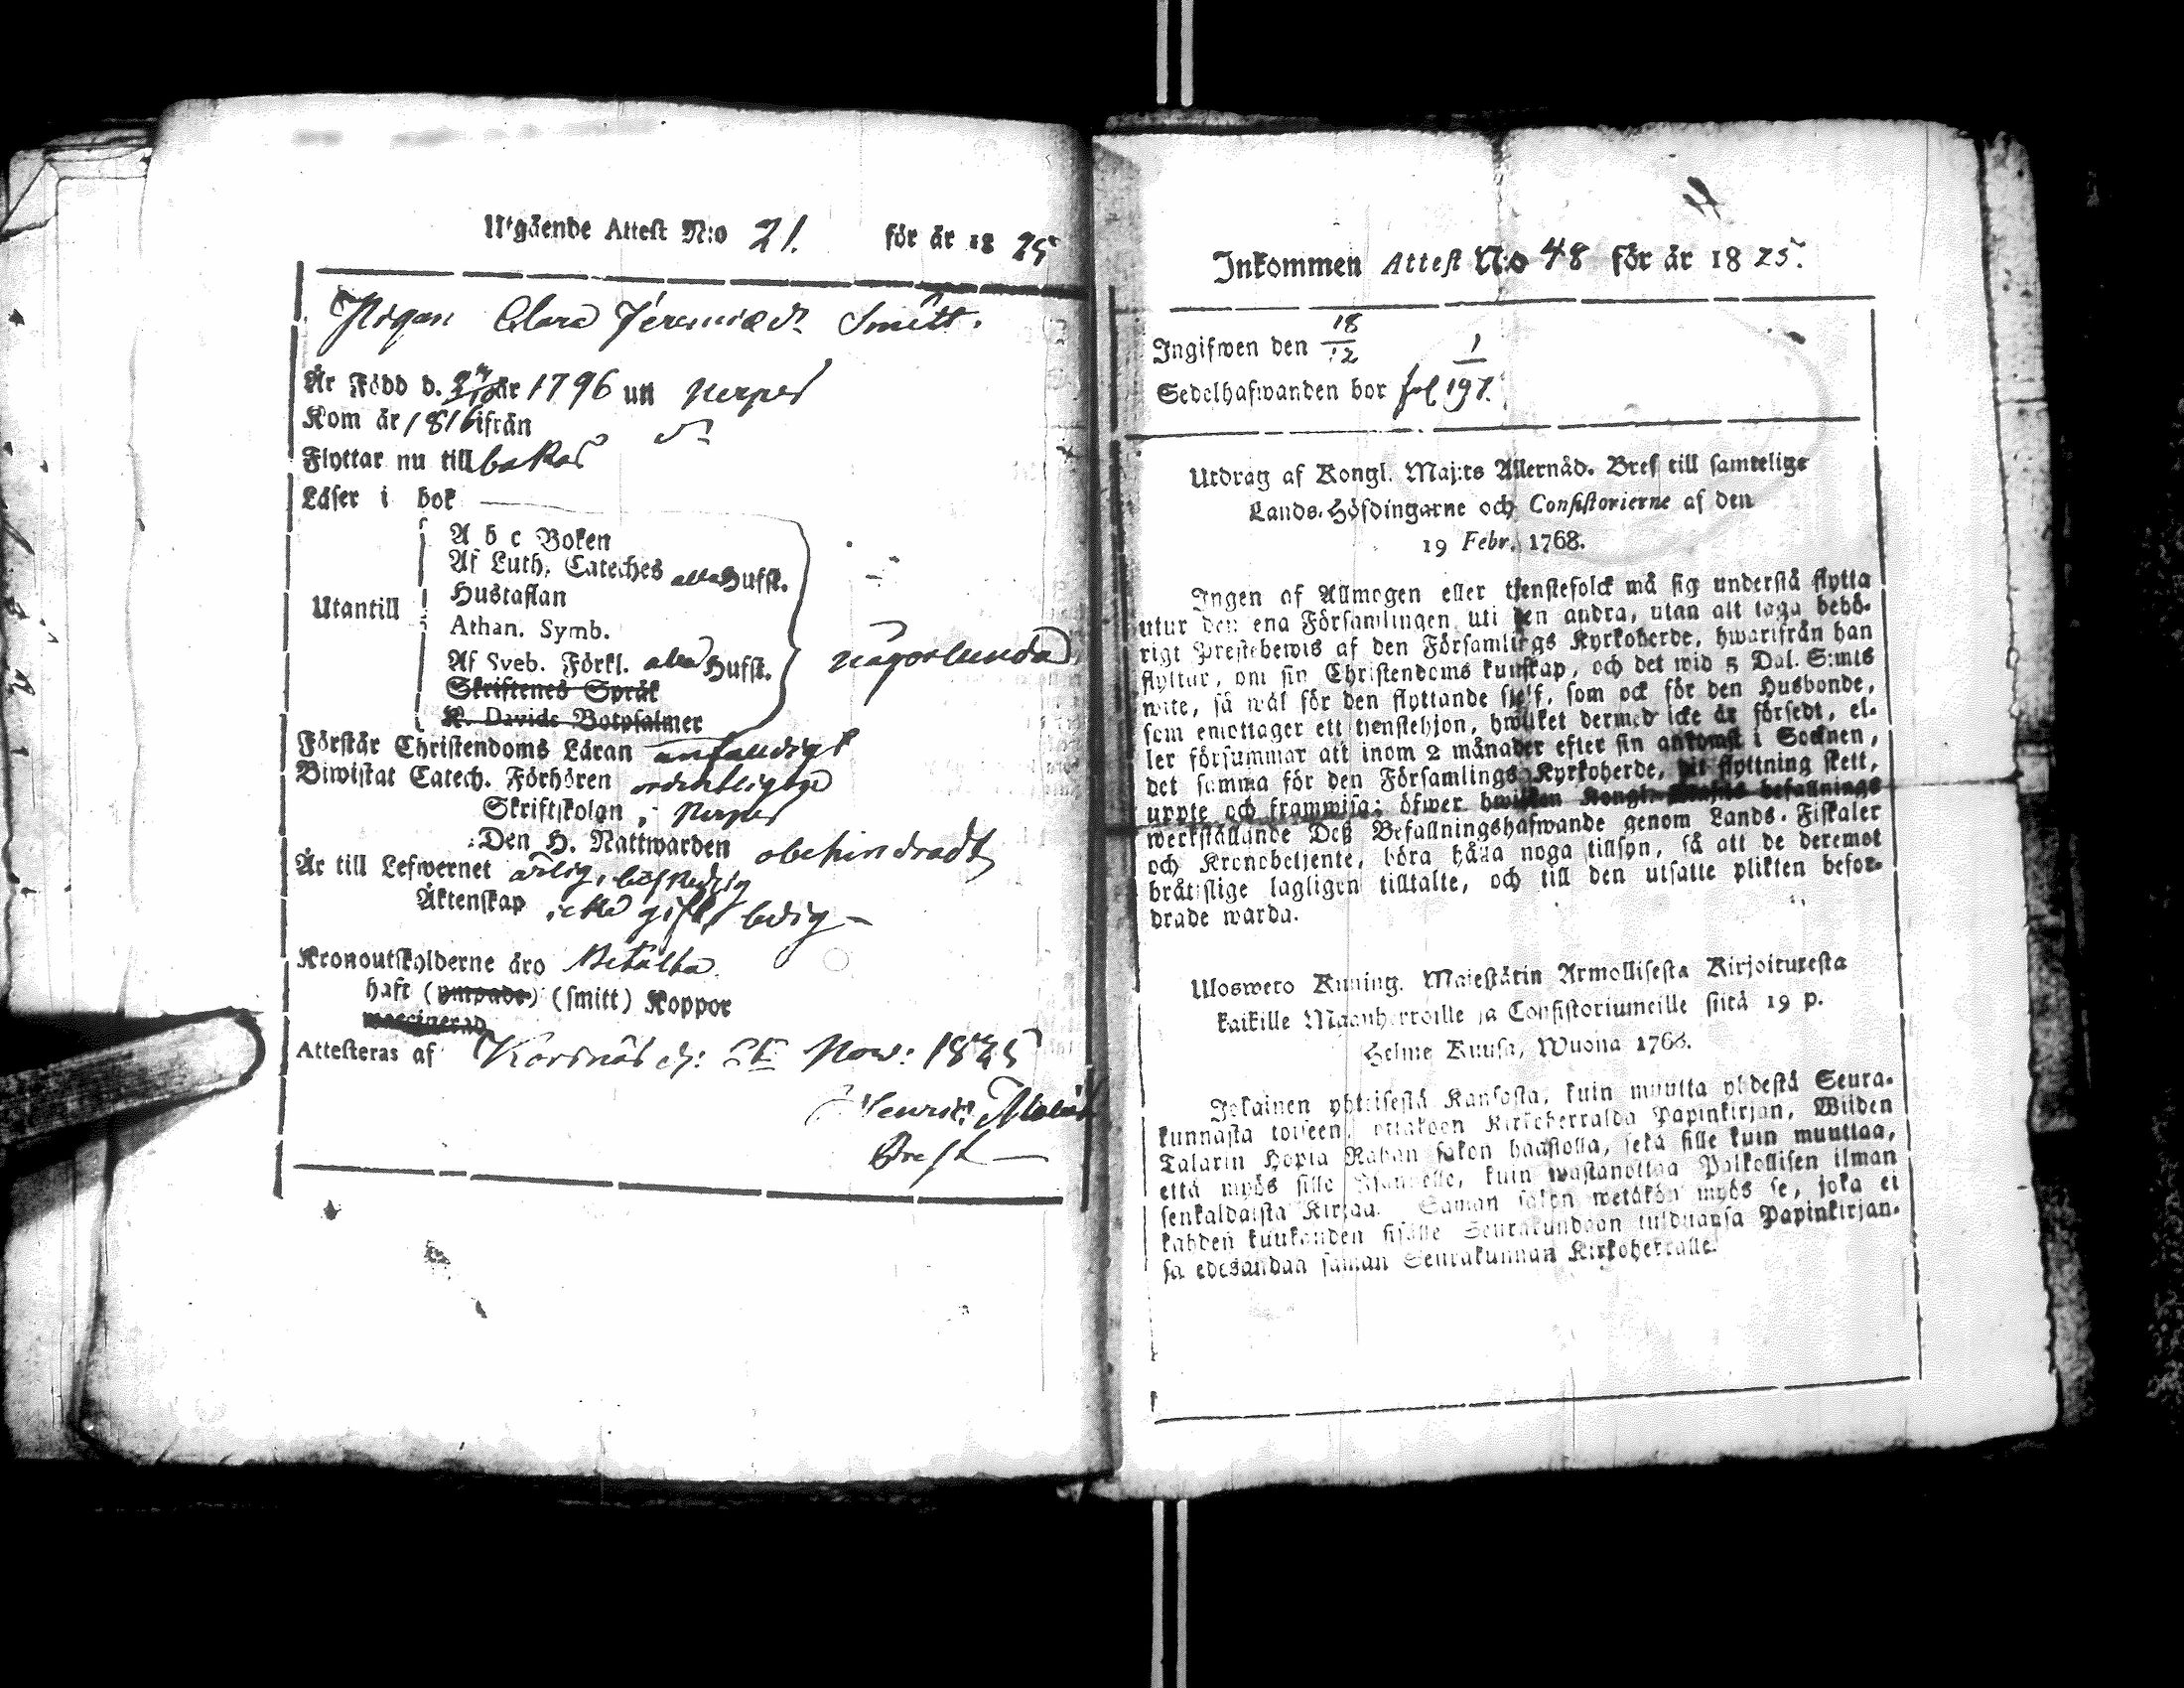 Utgående Attest N:o 21. för år 18 25
Pigan Clara Jeremiæd:r Smitt.
Är Född d. år 1796 uti Nerpes
Kom år 1816 ifrån d:o
Flyttar nu till bakas
Läser i bok
A b c Boken
Af Luth. Cateches alla Hufst.
Hustaflan
Utantill
Athan. Symb.
Af Sveb. Förkl. alla Hufst. någorlunda
Skriftenes Språk
K. Davids Botpsalmer
Förstår Christendoms Läran anständigt
Biwistat Catech. Förhören ordentligen
Skriftskolan i Nerpes
Den H. Nattwarden obehindradt
Är till Lefwernet ärlig, beskedlig
Äktenskap icke gift ledig
Kronoutskylderne äro Betalta
haft (ympade) (smitt) Koppor
waccinerad
Attesteras af Korsnäs d: Nov: 1825
Henric
Inkommen Attest N:o 48 för år 18 25.
Ingifwen den 18/12 1
Sedelhafwanden bor fol 197.
Utdrag af Kongl. Maj:ts Allernåd. Bref till samtelige
Lands-Höfdingarne och Consistorierne af den
19 Febr. 1768.
Ingen af Allmogen eller tjenstefolck må sig understå flytta
utur den ena Församlingen uti den andra, utan att taga behö-
rigt Prestebewis af den Församlings Kyrkoherde, hwarifrån han
flyttar, om sin Christendoms kunskap, och det wid 5 Dal. S:mts
wite, så wäl för den flyttande sjelf, som ock för den Husbonde,
som emottager ett tjenstehjon, hwilket dermed icke är försedt, el-
ler försummar att inom 2 månader efter sin ankomst i Socknen,
det samma för den Församlings Kyrkoherde, dit flyttning skett,
uppte och framwisa; öfwer hwilken Kongl. Maj:ts befallnings
werkställande Deß Befallningshafwande genom Lands-Fiskaler
och Kronobetjente, böra hålla noga tillsyn, så att de deremot
bråtslige lagligen tilltalte, och till den utsatte plikten befor-
drade warda.
Ulosweto Kuning. Majestätin Armollisesta Kirjoituxesta
kaikille Maanherroille ja Consistoriumeille siitä 19 p.
Helme Kuusa, Wuona 1768.
Jokainen yhteisestä Kansasta, kuin muutta yhdestä Seura-
kunnasta toiseen, ottakoon Kirkoherralda Papinkirjan, Wiiden
Talarin Hopia Rahan sakon haastolla, sekä sille kuin muuttaa,
että myös sille Isännelle, kuin wastanottaa Palkollisen ilman
senkaldaista Kirjaa. Saman sakon wetäkön myös se, joka ei
kahden kuukauden sisälle Seurakundaan tulduansa Papinkirjan-
sa edesandaa saman Seurakunnan Kirkoherralle.